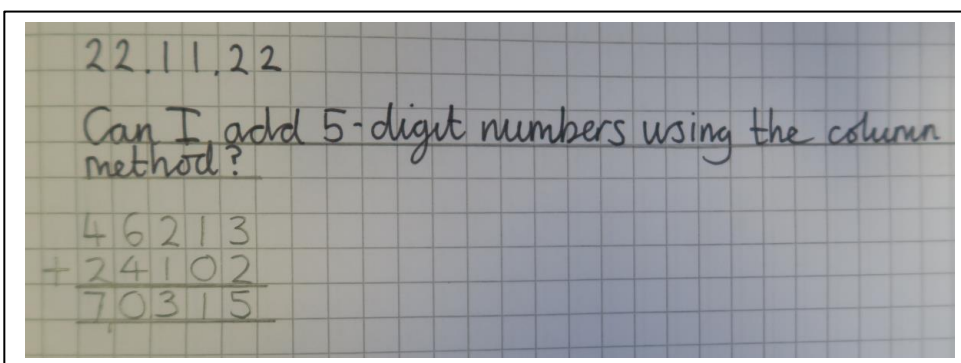 22.11.22
Can I add 5-digit numbers using the column
method?
46213
+24102
70315
1